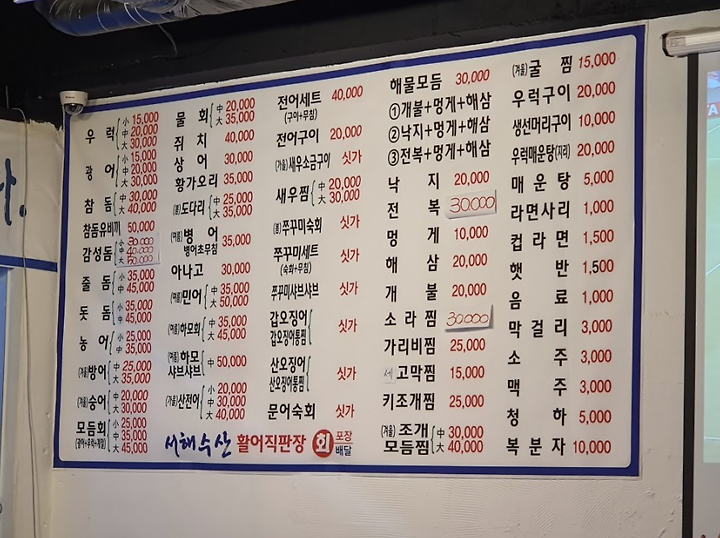 우럭 小 15,000
中 20,000
大 30,000
광어 小 15,000
中 20,000
大 30,000
참돔 中 30,000
大 40,000
참돔유비끼 50,000
감성돔 小 30,000
中 40,000
大 50,000
줄돔 小 35,000
中 45,000
돗돔 小 35,000
中 45,000
농어 小 25,000
中 35,000
(겨울)방어 中 25,000
大 35,000
(겨울)숭어 中 20,000
大 30,000
모듬회 小 25,000
中 35,000
(광어+우럭+계절) 大 45,000
물회 中 20,000
大 25,000
쥐치 40,000
상어 30,000
황가오리 35,000
(봄)도다리 中 25,000
大 35,000
(여름)병어
병어초무침 35,000
아나고 30,000
(여름)민어 中 35,000
大 50,000
(여름)하모회 中 35,000
大 45,000
(여름)하모
샤브샤브 中 50,000
(가을)산전어 小 20,000
中 30,000
大 40,000
전어세트 40,000
(구이+무침)
전어구이 20,000
(가을)새우소금구이 싯가
새우찜 中 20,000
大 30,000
(봄)쭈꾸미숙회 싯가
쭈꾸미세트 싯가
(숙회+무침)
쭈꾸미샤브샤브 싯가
갑오징어
갑오징어통찜 싯가
산오징어
산오징어통찜 싯가
문어숙회 싯가
해물모듬 30,000
①개불+멍게+해삼
②낙지+멍게+해삼
③전복+멍게+해삼
낙지 20,000
전복 30000
멍게 10,000
해삼 20,000
개불 20,000
소라찜 30000
가리비찜 25,000
세고막찜 15,000
키조개찜 25,000
(겨울)조개
모듬찜 中 30,000
大 40,000
(겨울)굴찜 15,000
우럭구이 20,000
생선머리구이 10,000
우럭매운탕(지리) 20,000
매운탕 5,000
라면사리 1,000
컵라면 1,500
햇반 1,500
음료 1,000
막걸리 3,000
소주 3,000
맥주 3,000
청하 5,000
복분자 10,000
서해수산 활어직판장 회 포장
배달